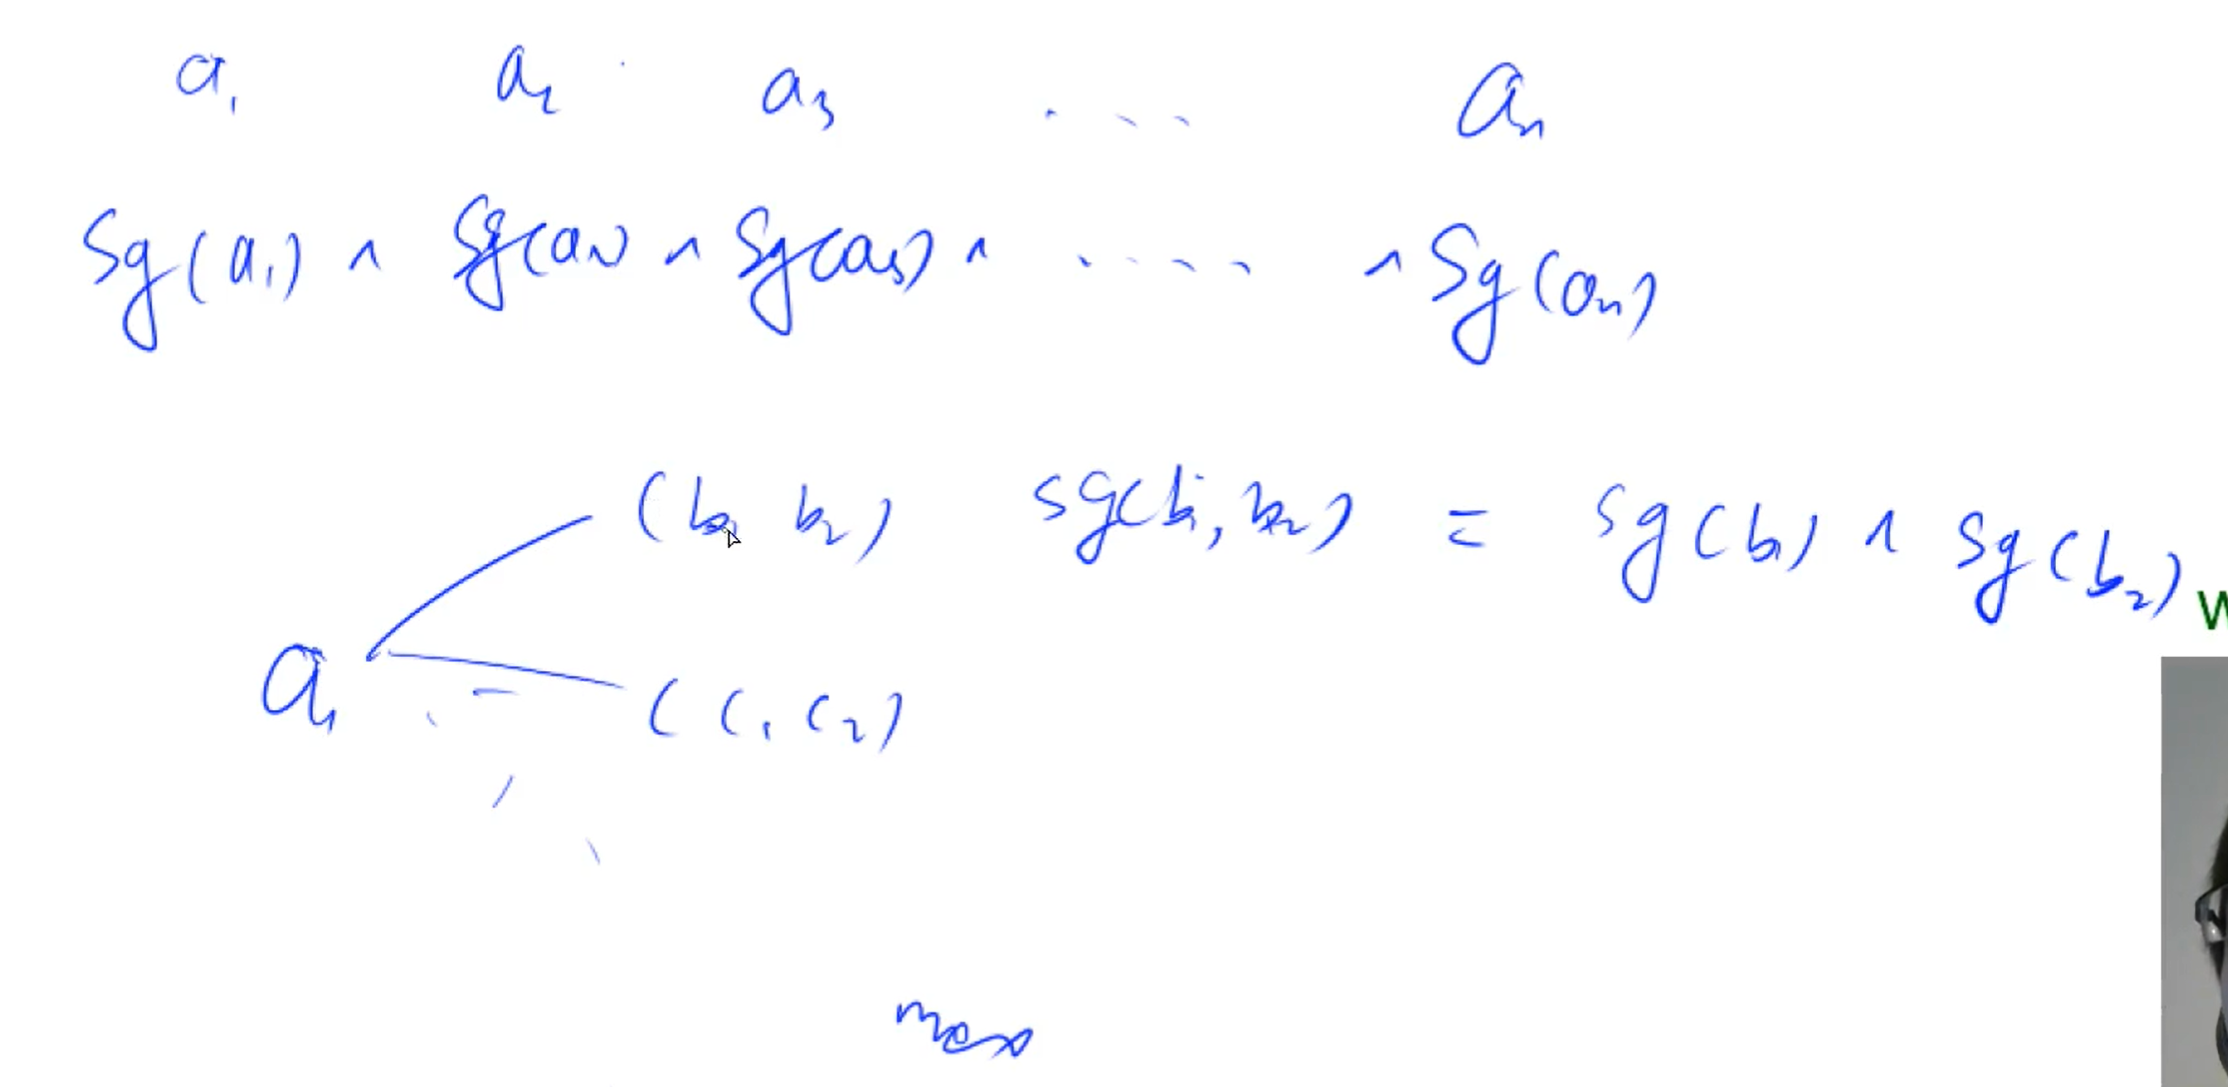 a₁ a₂ a₃ ... aₙ
Sg(a₁) ^ Sg(a₂) ^ Sg(a₃) ^ .... ^ Sg(aₙ)
(b₁ b₂) sg(b₁, b₂) = sg(b₁) ^ sg(b₂)
a₁
(c₁ c₂)
mex